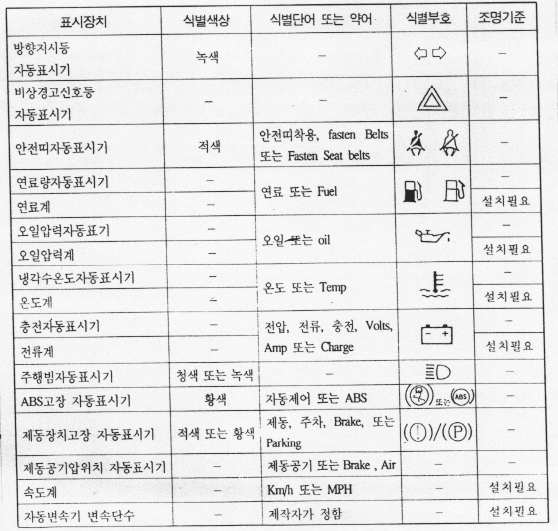 표시장치 식별색상 식별단어 또는 약어 식별부호 조명기준
방향지시등
자동표시기 녹색 － －
비상경고신호등
자동표시기 － － －
안전띠자동표시기 적색 안전띠착용, fasten Belts
또는 Fasten Seat belts －
연료량자동표시기 － 연료 또는 Fuel －
연료계 － 설치필요
오일압력자동표기 － 오일 또는 oil －
오일압력계 － 설치필요
냉각수온도자동표시기 － 온도 또는 Temp －
온도계 － 설치필요
충전자동표시기 － 전압, 전류, 충전, Volts,
Amp 또는 Charge －
전류계 － 설치필요
주행빔자동표시기 청색 또는 녹색 － －
ABS고장 자동표시기 황색 자동제어 또는 ABS 또는 ABS －
제동장치고장 자동표시기 적색 또는 황색 제동, 주차, Brake, 또는
Parking (!)/(P) －
제동공기압위치 자동표시기 － 제동공기 또는 Brake , Air － －
속도계 － Km/h 또는 MPH － 설치필요
자동변속기 변속단수 － 제작자가 정함 － 설치필요